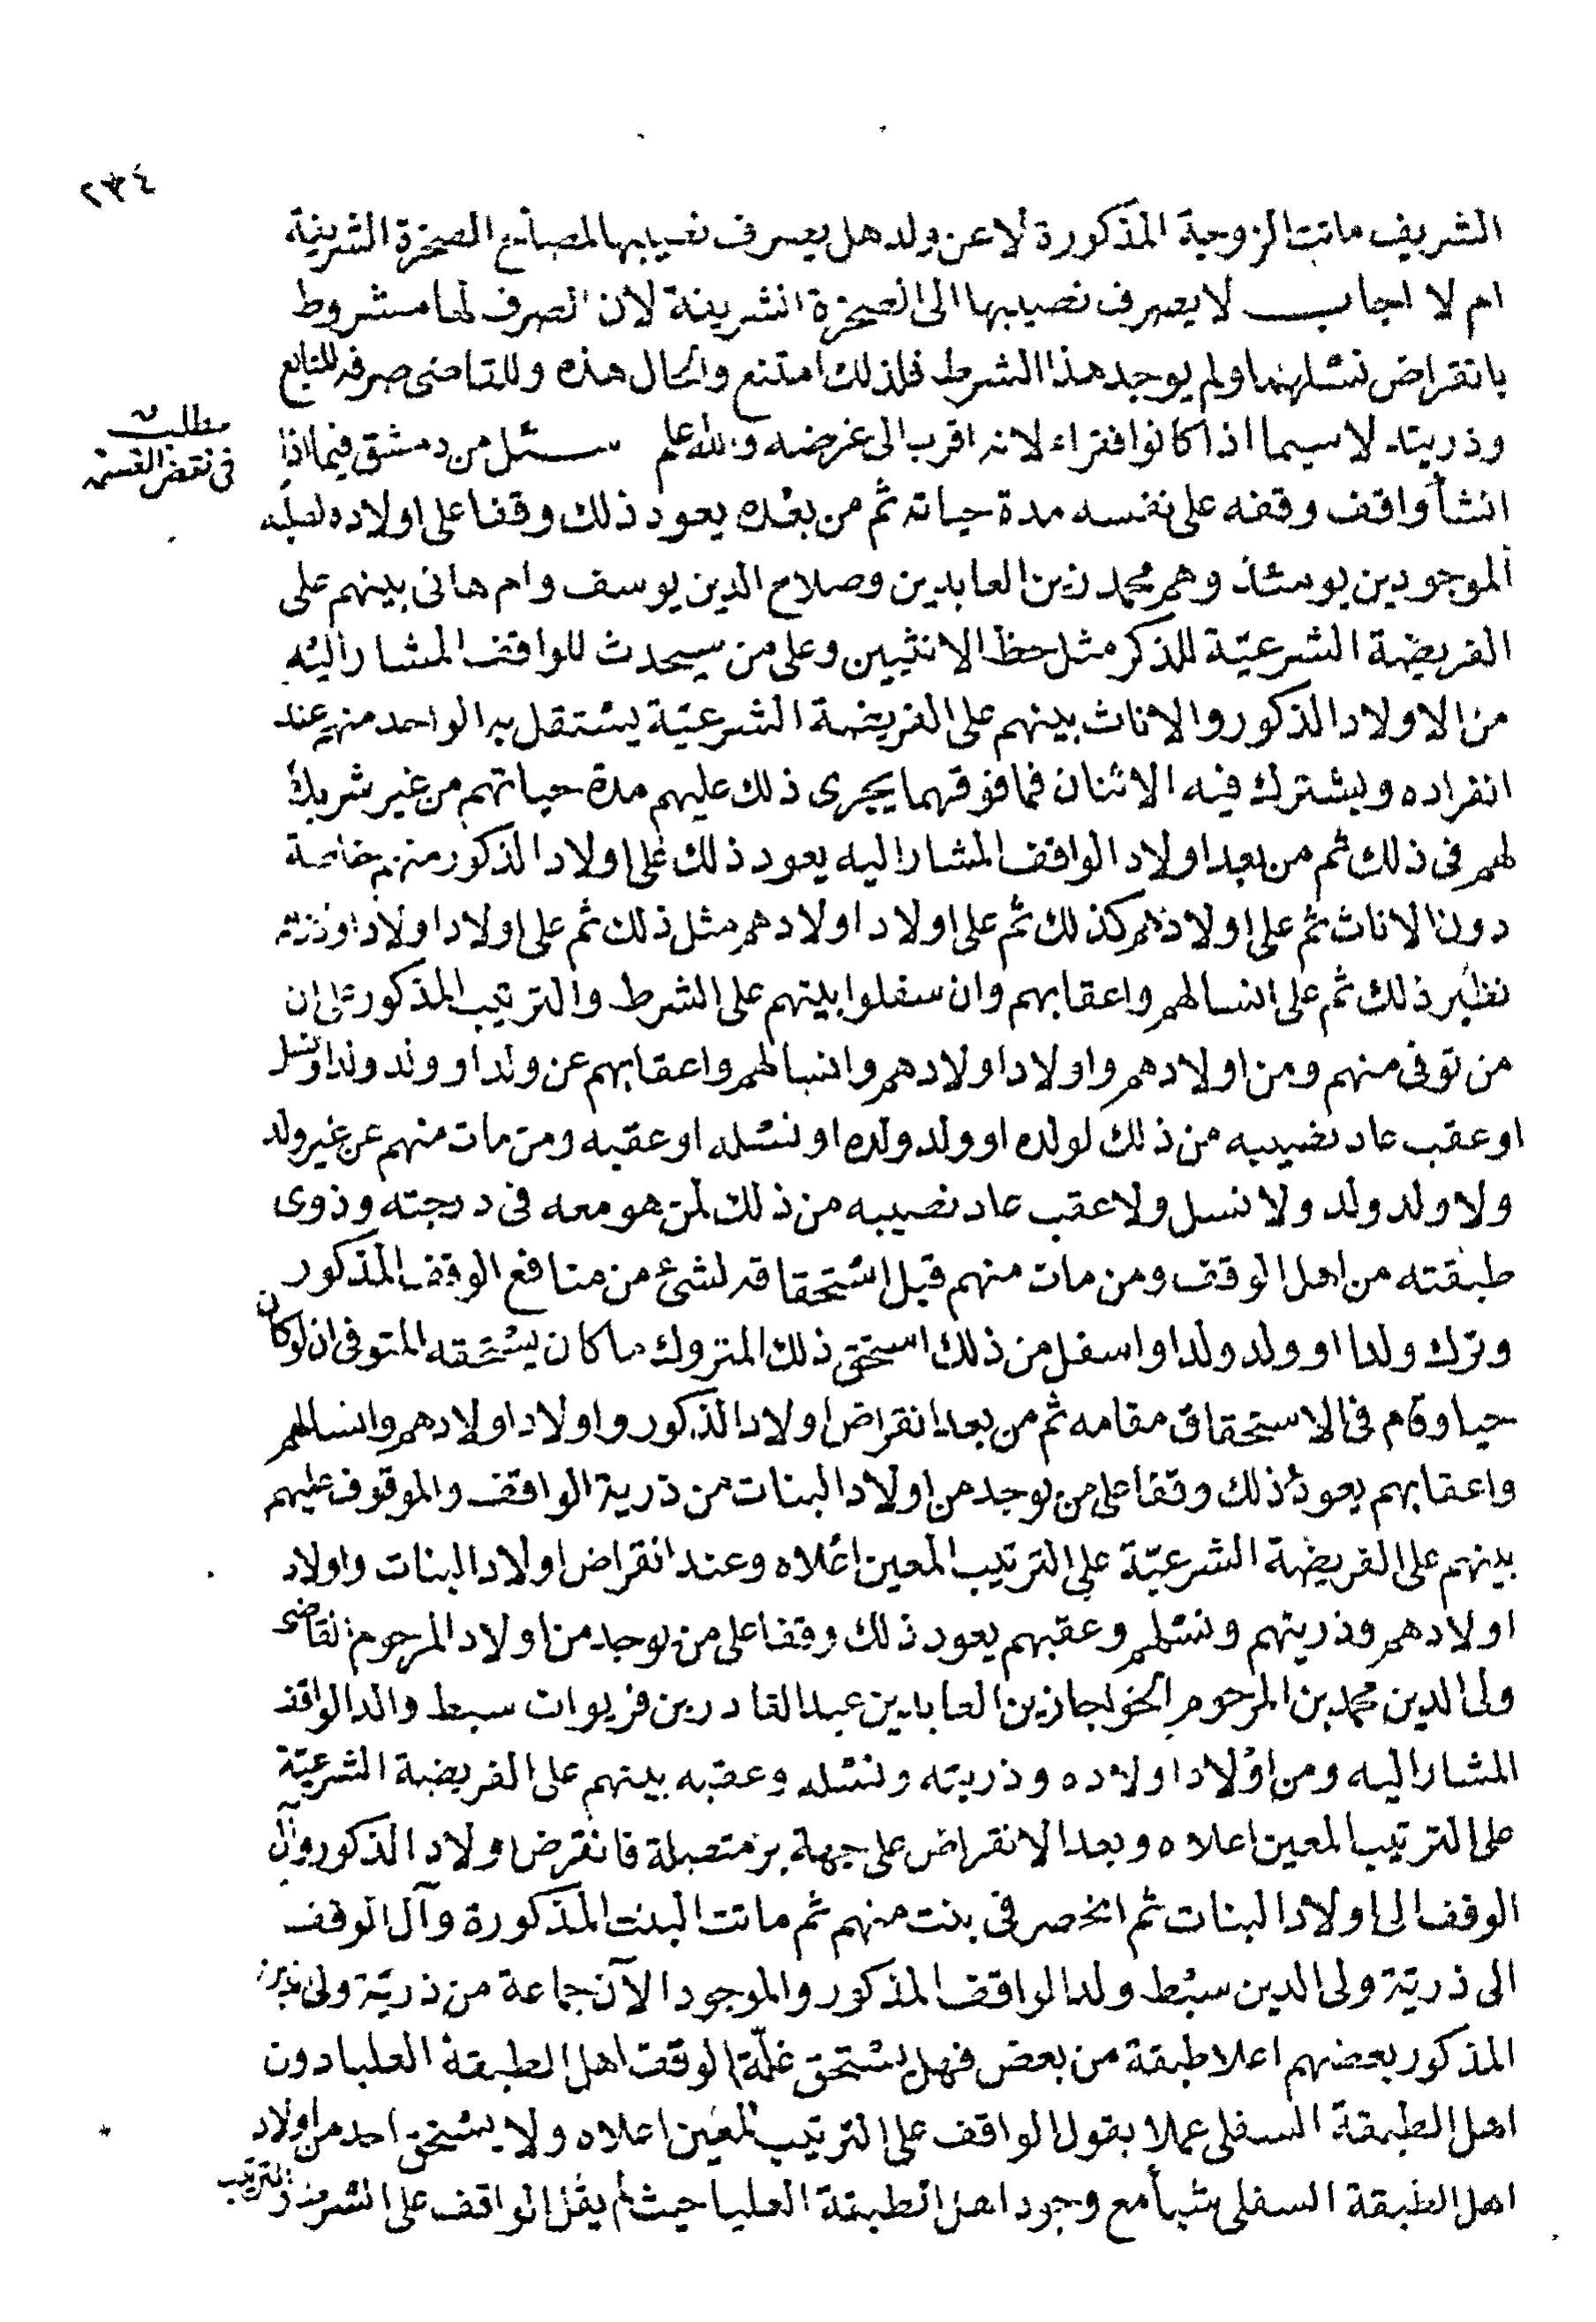 ٢٣٤
الشريف ماتت الزوجة المذكورة لا عن ولد هل يصرف نصيبها لمصالح الصخرة الشريفة
ام لا اجاب لا يصرف نصيبها الى الصخرة الشريفة لان الصرف لها مشروط
بانقراض نسلهما ولم يوجد هذا الشرط فلذلك امتنع والحال هذه وللقاضى صرفه
وذريته لا سيما اذا كانوا فقراء لانه اقرب الى غرضه والله اعلم سئل من دمشق فيما اذا
مطلب
فى نقض القسمة
انشأ واقف وقفه على نفسه مدة حياته ثم من بعده يعود ذلك وقفا على اولاده لصلبه
الموجودين يومئذ وهم محمد زين العابدين وصلاح الدين يوسف وام هانى بينهم على
الفريضة الشرعيّة للذكر مثل حظ الانثيين وعلى من سيحدث للواقف المشار اليه
من الاولاد الذكور والاناث بينهم على الفريضة الشرعيّة يستقل به الواحد منهم عند
انفراده ويشترك فيه الاثنان فما فوقهما يجرى ذلك عليهم مدة حياتهم من غير شريك
لهم فى ذلك ثم من بعد اولاد الواقف المشار اليه يعود ذلك على اولاد الذكور منهم خاصة
دون الاناث ثم على اولادهم كذلك ثم على اولاد اولادهم مثل ذلك ثم على اولاد اولاد
نظير ذلك ثم على انسالهم واعقابهم وان سفلوا بينهم على الشرط والترتيب المذكور على ان
من توفى منهم ومن اولادهم واولاد اولادهم وانسالهم واعقابهم عن ولد او ولد ولد او نسل
او عقب عاد نصيبه من ذلك لولده او ولد ولده او نسله او عقبه ومن مات منهم عن غير ولد
ولا ولد ولد ولا نسل ولا عقب عاد نصيبه من ذلك لمن هو معه فى درجته وذوى
طبقته من اهل الوقف ومن مات منهم قبل استحقاقه لشئ من منافع الوقف المذكور
وترك ولدا او ولد ولد او اسفل من ذلك استحق ذلك المتروك ما كان يستحقه المتوفى ان لو كان
حيا وقام فى الاستحقاق مقامه ثم من بعد انقراض اولاد الذكور واولاد اولادهم وانسالهم
واعقابهم يعود ذلك وقفا على من يوجد من اولاد البنات من ذرية الواقف والموقوف عليهم
بينهم على الفريضة الشرعيّة على الترتيب المعين اعلاه وعند انقراض اولاد البنات واولاد
اولادهم وذريتهم ونسلهم وعقبهم يعود ذلك وقفا على من يوجد من اولاد المرحوم القاضى
ولى الدين محمد بن المرحوم الخواجا زين العابدين عبد القادر بن فريوات سبط والد الواقف
المشار اليه ومن اولاد اولاده وذريته ونسله وعقبه بينهم على الفريضة الشرعيّة
على الترتيب المعين اعلاه وبعد الانقراض على جهة بر متصلة فانقرض اولاد الذكور وآل
الوقف الى اولاد البنات ثم انحصر فى بنت منهم ثم ماتت البنت المذكورة وآل الوقف
الى ذريّة ولى الدين سبط ولد الواقف المذكور والموجود الآن جماعة من ذريّة ولى الدين
المذكور بعضهم اعلا طبقة من بعض فهل يستحق غلّة الوقف اهل الطبقة العليا دون
اهل الطبقة السفلى عملا بقول الواقف على الترتيب المعين اعلاه ولا يستحق احد من اولاد
اهل الطبقة السفلى شيأ مع وجود اهل الطبقة العليا حيث لم يقل الواقف على الشرط والترتيب